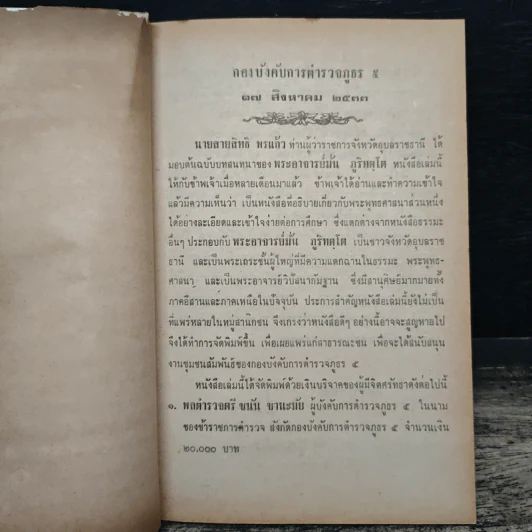 กองบังคับการตำรวจภูธร ๕
๑๗ สิงหาคม ๒๕๓๓
นายสายสิทธิ พรแก้ว ท่านผู้ว่าราชการจังหวัดอุบลราชธานี ได้
มอบต้นฉบับบทสนทนาของพระอาจารย์มั่น ภูริทตฺโต หนังสือเล่มนี้
ให้กับข้าพเจ้าเมื่อหลายเดือนมาแล้ว ข้าพเจ้าได้อ่านและทำความเข้าใจ
แล้วมีความเห็นว่า เป็นหนังสือที่อธิบายเกี่ยวกับพระพุทธศาสนาส่วนหนึ่ง
ได้อย่างละเอียดและเข้าใจง่ายต่อการศึกษา ซึ่งแตกต่างจากหนังสือธรรมะ
อื่นๆ ประกอบกับพระอาจารย์มั่น ภูริทตฺโต เป็นชาวจังหวัดอุบลราช
ธานี และเป็นพระเถระชั้นผู้ใหญ่ที่มีความแตกฉานในธรรมะ พระพุทธ-
ศาสนา และเป็นพระอาจารย์วิปัสนากัมฐาน ซึ่งมีสานุศิษย์มากมายทั้ง
ภาคอีสานและภาคเหนือในปัจจุบัน ประการสำคัญหนังสือเล่มนี้ยังไม่เป็น
ที่แพร่หลายในหมู่สานิกชน จึงเกรงว่าหนังสือดีๆ อย่างนี้อาจจะสูญหายไป
จึงได้ทำการจัดพิมพ์ขึ้น เพื่อเผยแพร่แก่สาธารณะชน เพื่อจะได้สนับสนุน
งานชุมชนสัมพันธ์ของกองบังคับการตำรวจภูธร ๕
หนังสือเล่มนี้ได้จัดพิมพ์ด้วยเงินบริจาคของผู้มีจิตศรัทธาดังต่อไปนี้
๑. พลตำรวจตรี ขนัน ฆานะมัย ผู้บังคับการตำรวจภูธร ๕ ในนาม
ของข้าราชการตำรวจ สังกัดกองบังคับการตำรวจภูธร ๕ จำนวนเงิน
๒๐,๐๐๐ บาท